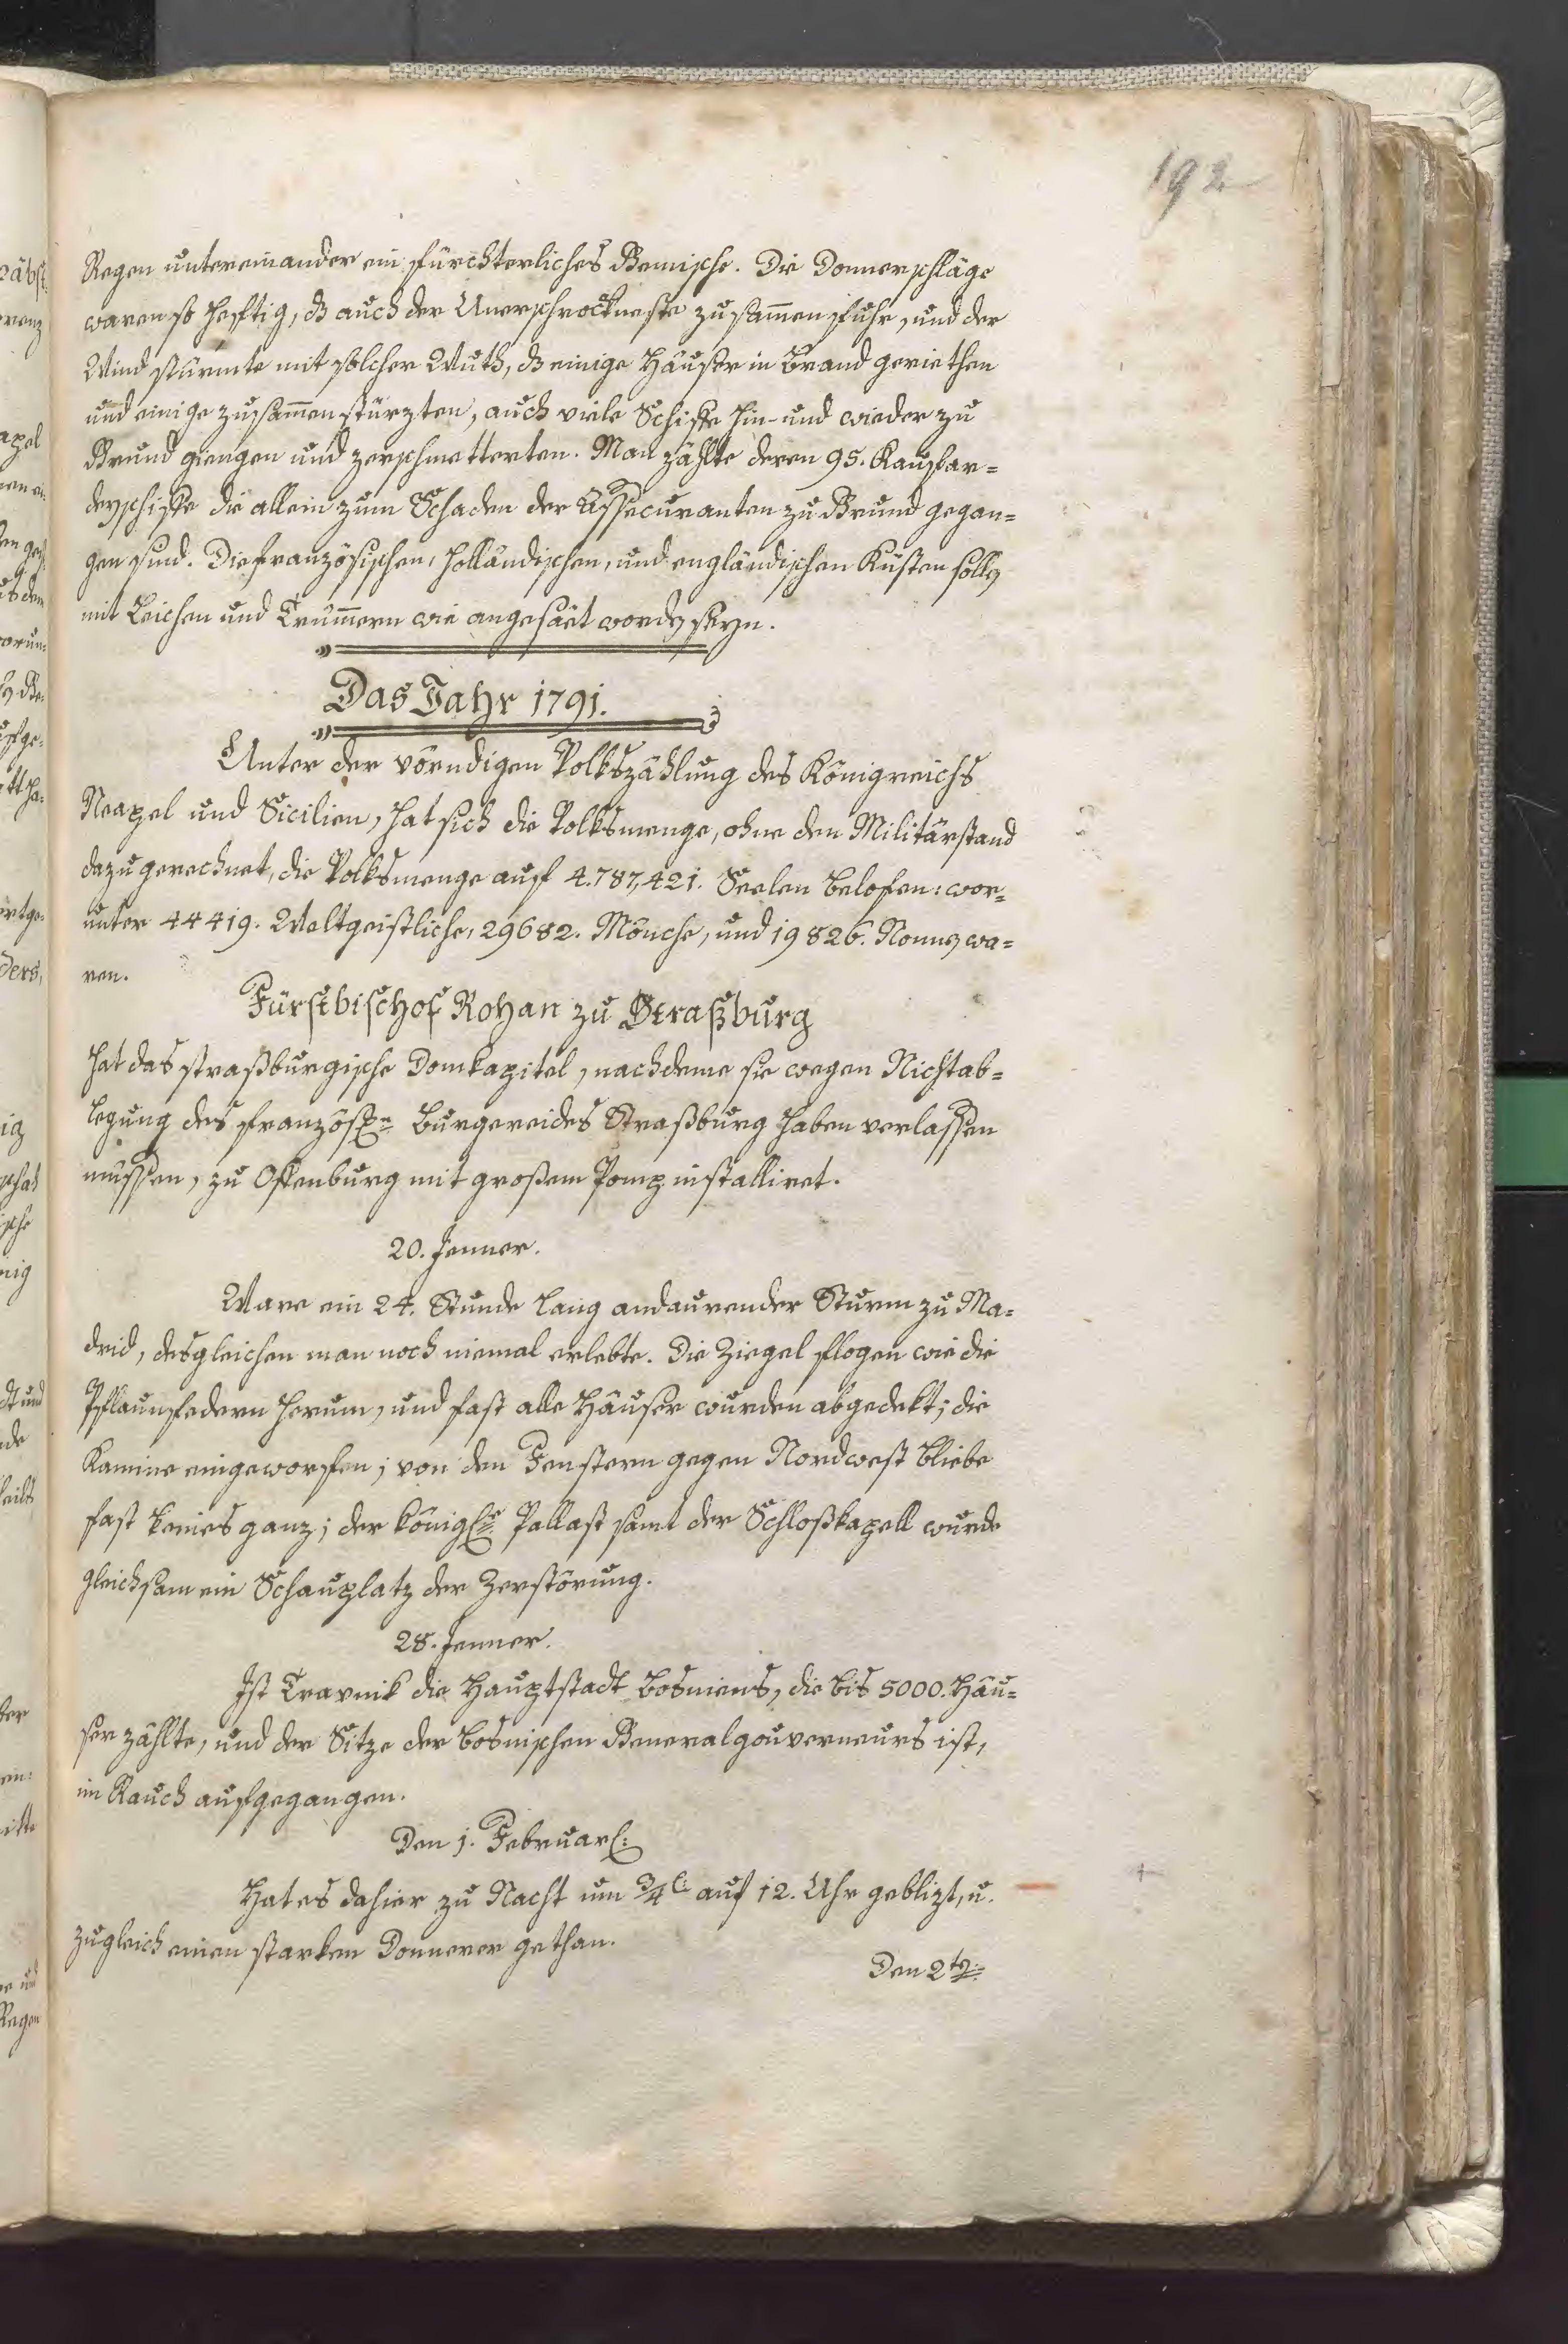 192
Regen untereinander ein fürchterliches Gemische. Die Donnerschläge
waren so heftig, dß auch der Unerschrockneste zusam̄enfuhr, und der
Wind stürmte mit solcher Wuth, dß einige Häuser in Brand geriethen
und einige zusam̄enstürzten, auch viele Schiffe hin- und wieder zu
Grund giengen und zerschmetterten. Man zählte deren 95. Kauffar=
deyschiffe die allein zum Schaden der Assecuranten zu Grund gegan=
gen sind. Die französischen, holländischen, und engländischen Küsten sollen
mit Leichen und Trüm̄ern wie angesäet worden seyn.
Das Jahr 1791.
Unter der vörndigen Volkszählung des Königreichs
Neapel und Sicilien, hat sich die Volksmenge, ohne den Militärstand
dazu gerechnet, die Volksmenge auf 4.787,421. Seelen belofen: wor=
unter 44419. Weltgeistliche, 29682. Mönche, und 19826. Nonnen wa=
ren.
Fürstbischof Rohan zu Straßburg
hat das straßburgische Domkapitel, nachdeme sie wegen Nichtab=
legung des französn Burgereides Straßburg haben verlassen
müssen, zu Offenburg mit großem Pomp installiret.
20. Jenner.
Ware ein 24. Stunde lang andaurender Sturm zu Ma=
drid, desgleichen man noch niemal erlebte. Die Ziegel flogen wie die
Pflaumfedern herum, und fast alle Häuser wurden abgedekt; die
Kamine eingeworfen; von den Fenstern gegen Nordwest bliebe
fast keines ganz; der königle Pallast samt der Schloßkapell wurde
gleichsam ein Schauplatz der Zerstörung.
28. Jenner.
Ist Travnik die Hauptstadt Bosniens, die bis 5000. Häu=
ser zählte, und der Sitze der bosnischen Generalgouverneurs ist,
im Rauch aufgegangen.
Den 1. Februar:
Hat es dahier zu Nacht um 3/4l auf 12. Uhr geblizt, u.
zugleich einen starken Donnerer gethan.
Den 2tn